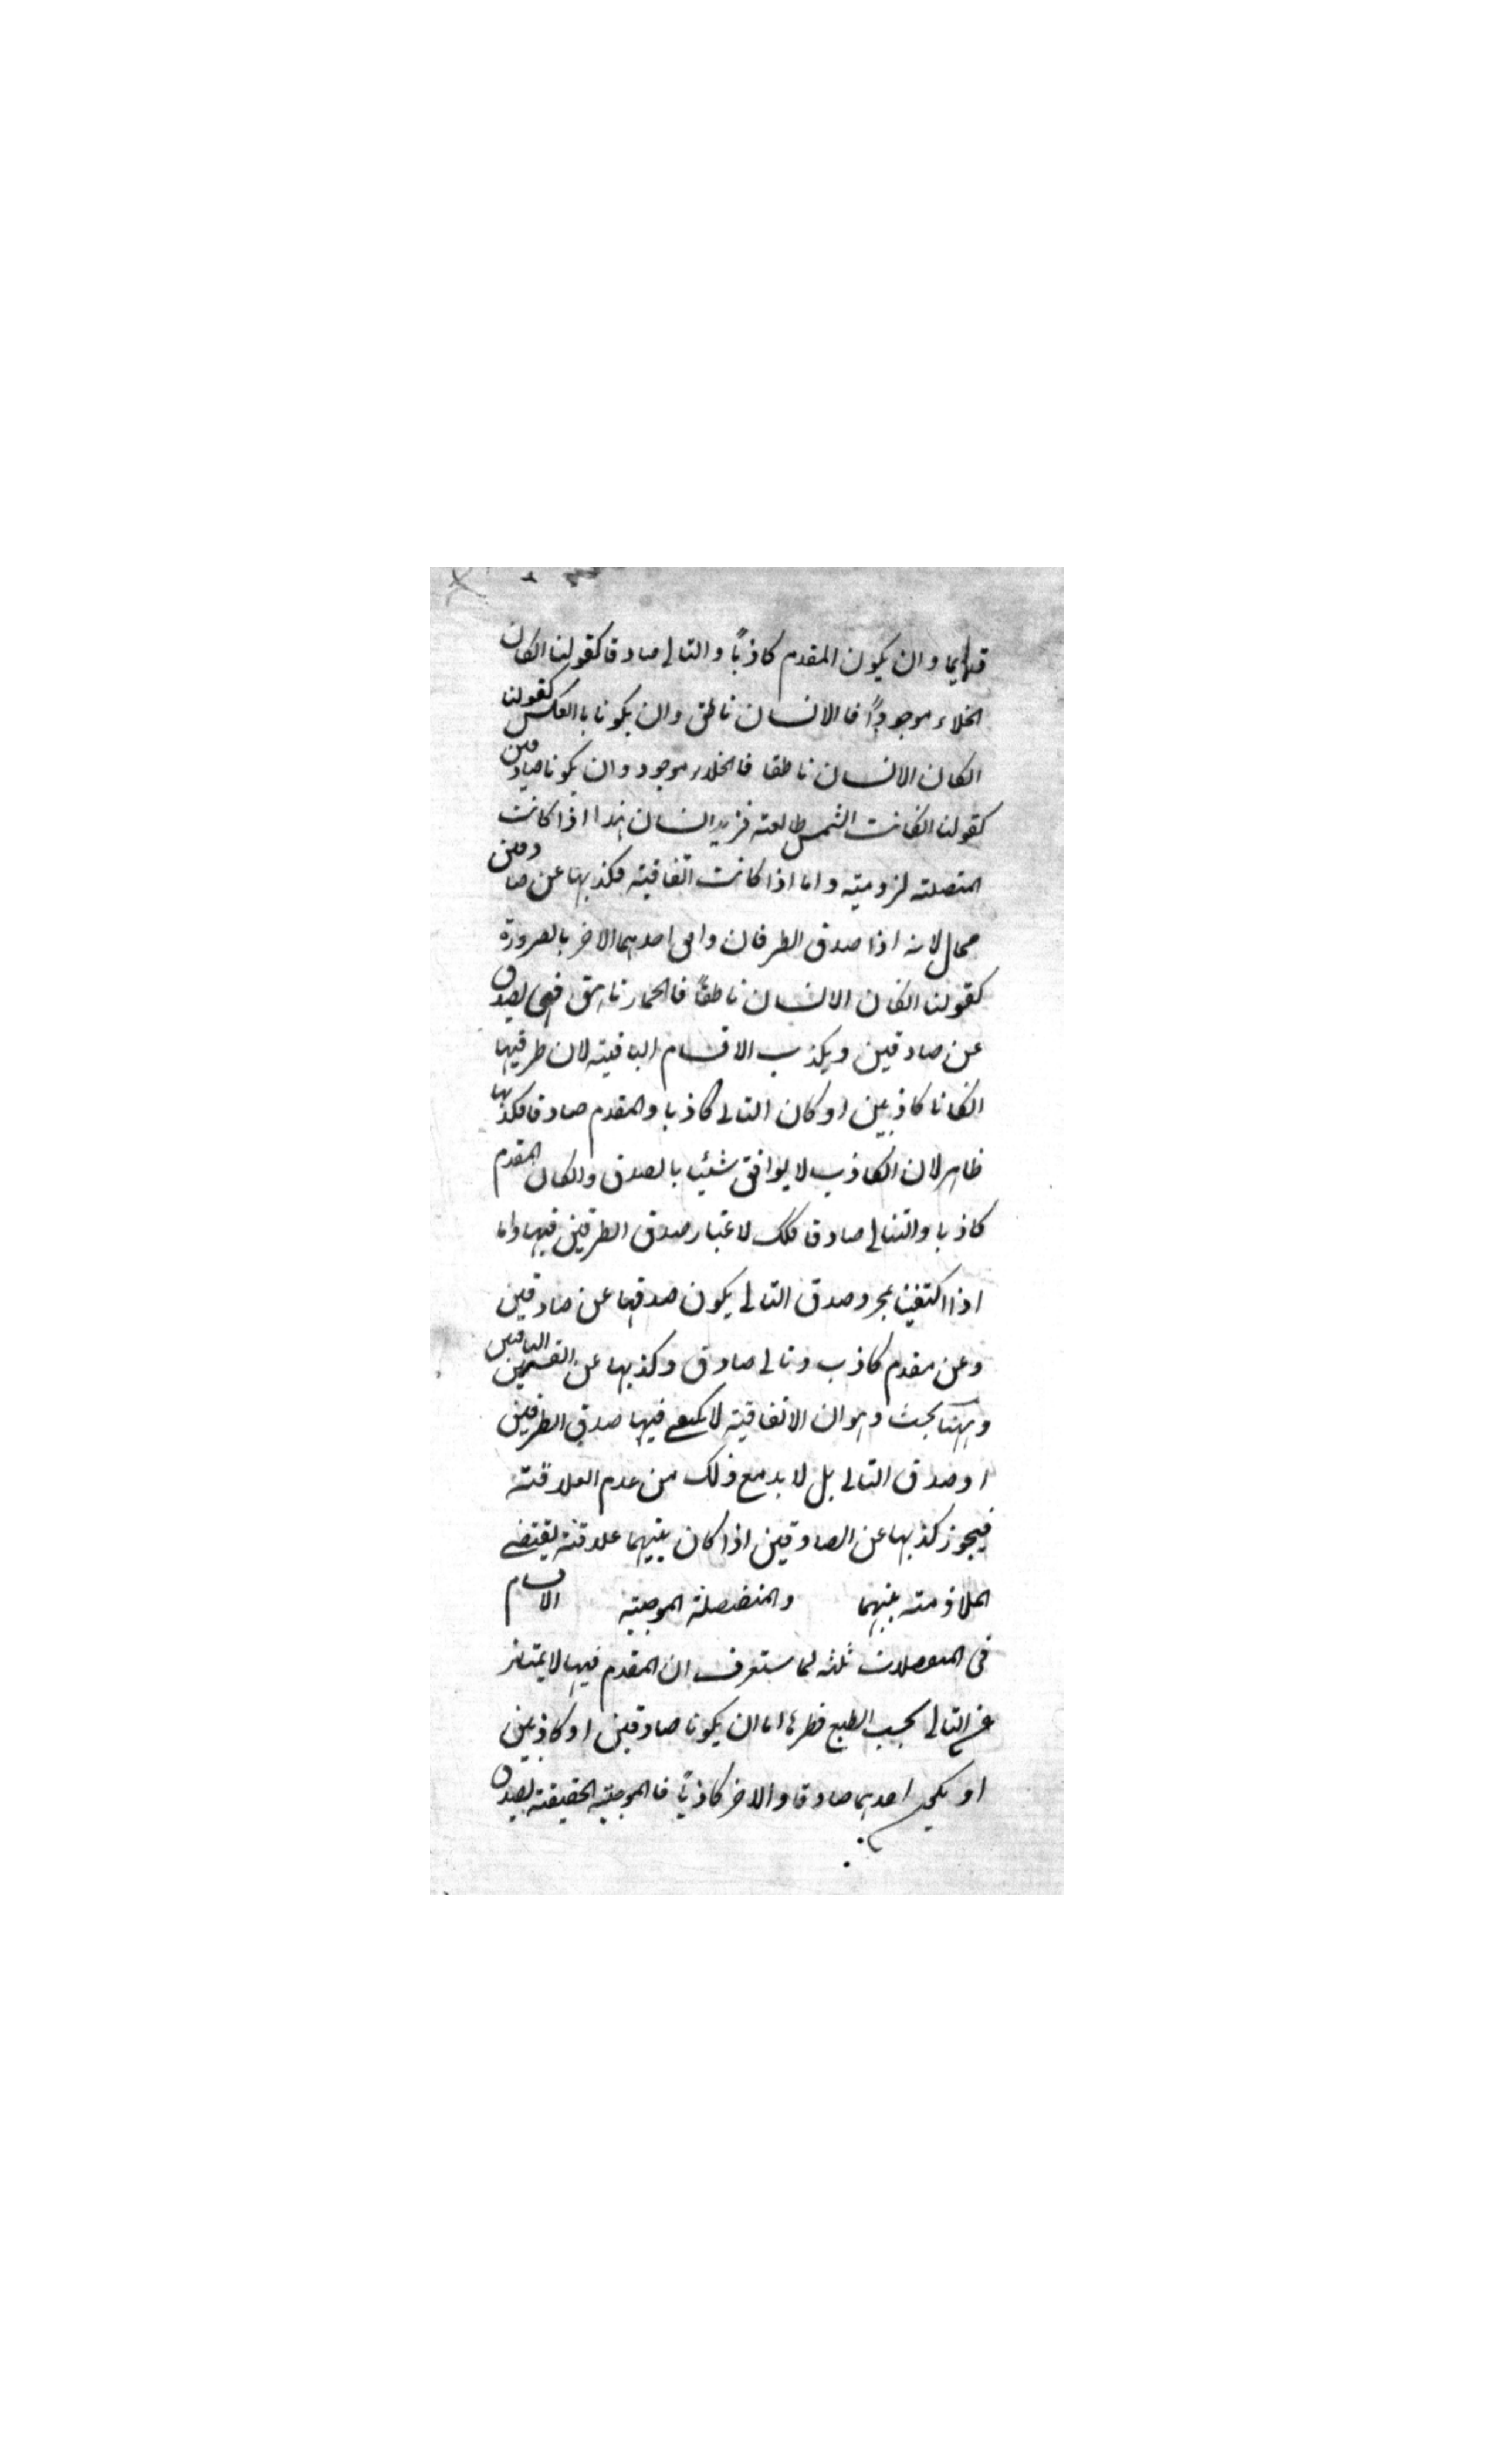 قديما وان يكون المقدم كاذبًا والتالى صادقا كقولنا انكان
الخلاء موجودًا فالانسان ناطق وان يكونا بالعكس كقولنا
انكان الانسان ناطقا فالخلاء موجود وان يكونا صادقين
كقولنا انكانت الشمس طالعته فزيد انسان هذا اذا كانت
المتصلته لزوميته واما اذا كانت اتفاقيته فكذبها عن صادقين
محال لانه اذا صدق الطرفان وافى احدهما الاخر بالضرورة
كقولنا انكان الانسان ناطقًا فالحمار ناهق فهى تصدق
عن صادقين ويكذب الاقسام الباقيته لان طرفيها
انكانا كاذبين او كان التالى كاذبا والمقدم صادقا فكذبها
ظاهر لان الكاذب لا يوافق شيئا بالصدق وانكان المقدم
كاذبا والتالى صادقا فكك لاعتبار صدق الطرفين فيها واما
اذا اكتفينا بمجرد صدق التالى يكون صدقها عن صادقين
وعن مقدم كاذب وتالى صادق وكذبها عن القسمين الباقين
وههنا بحث وهو ان الاتفاقيته لا يكفى فيها صدق الطرفين
او صدق التالى بل لا بد مع ذلك من عدم العلاقته
فيجوز كذبها عن الصادقين اذا كان بينهما علاقته يقتضى
الملازمته بينهما والمنفصلته الموجبته الاقسام
فى المنفصلات ثلثه لما ستعرف ان المقدم فيها لا يمتاز
عن التالى بحسب الطبع فطرفاها اما ان يكونا صادقين او كاذبين
او يكون احدهما صادقا والاخر كاذبًا فالموجبته الحقيقته تصدق